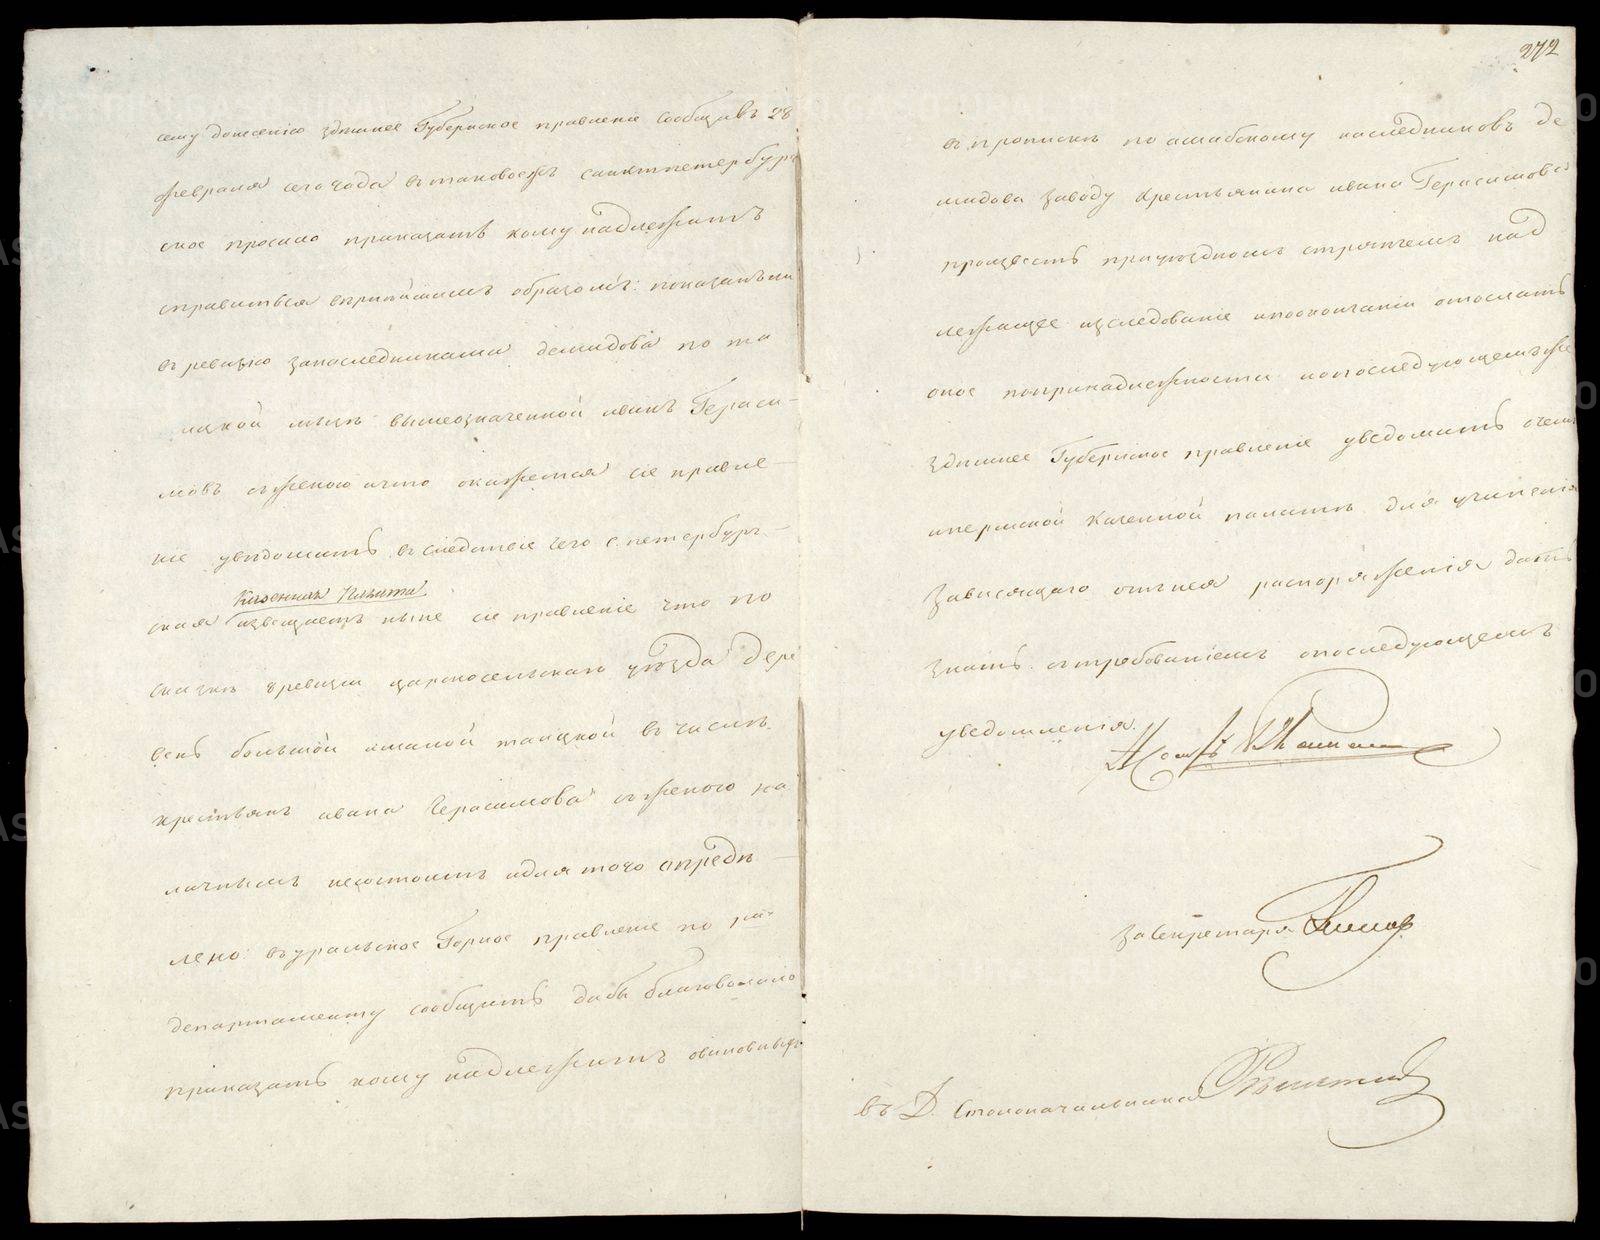 сему доношению здѣшнее Губернское правленіе сообщивъ 28
февраля сего года въ таковоежъ санктпетербург
ское просило приказать кому надлежитъ
справиться слѣдующимъ образомъ: показанъ ли
въ ревизію занаследниками демидова по та
ицкой мызѣ вышеозначенной иванъ Гераси-
мовъ сженою ичто окажется сіе правле-
ніе увѣдомить вследствіе чего с. петербург-
Казенная Палата
ская извещаетъ ныне сіе правленіе что по
сказкѣ ревизіи царскосельскаго уѣзда дере
вень большой ималой таицкой въ числѣ
крестьянъ ивана Герасимова сженою на
личнымъ несостоитъ идля того опредѣ-
лено: въ уральское Горное правленіе по
департаменту сообщить дабы благоволило
приказать кому надлежитъ
272
въ прописке по шабскому наследниковъ де
мидова заводу крестьянина ивана Герасимова
произвесть приуѣздномъ стряпчемъ над
лежащее изследованіе ипоокончаніи отослать
оное попринадлежности ипоследующемъ же
здѣшнее Губернское правленіе уведомить очемъ
ипермской казенной палатѣ для учиненія
зависящаго отънея распоряженія дать
знать стребованіемъ опоследующемъ
уведомленія.
За секретаря
въ Д. Столоначальника